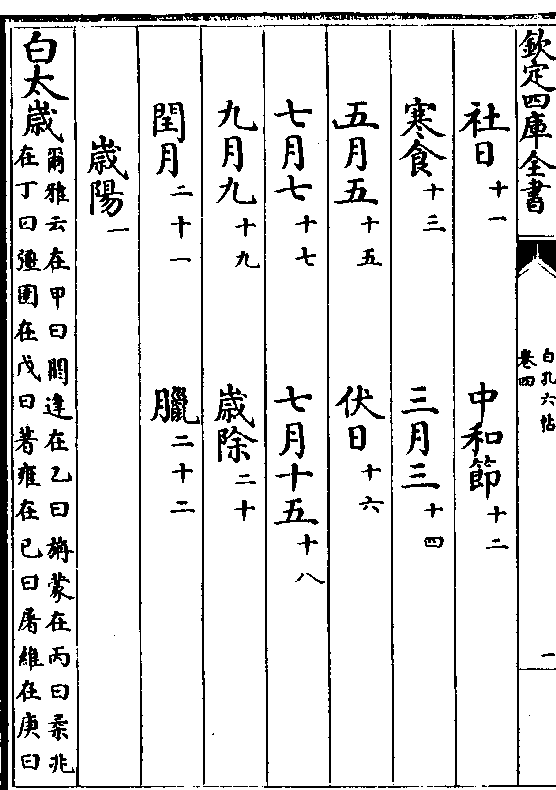 欽定四庫全書
白孔六帖
卷四
一
社日十一
中和節十二
寒食十三
三月三十四
五月五十五
伏日十六
七月七十七
七月十五十八
九月九十九
歳除二十
閏月二十一
臘二十二
歳陽一
白太歳
爾雅云在甲曰閼逢在乙曰旃蒙在丙曰柔兆
在丁曰彊圉在戊曰著雍在已曰屠維在庚曰